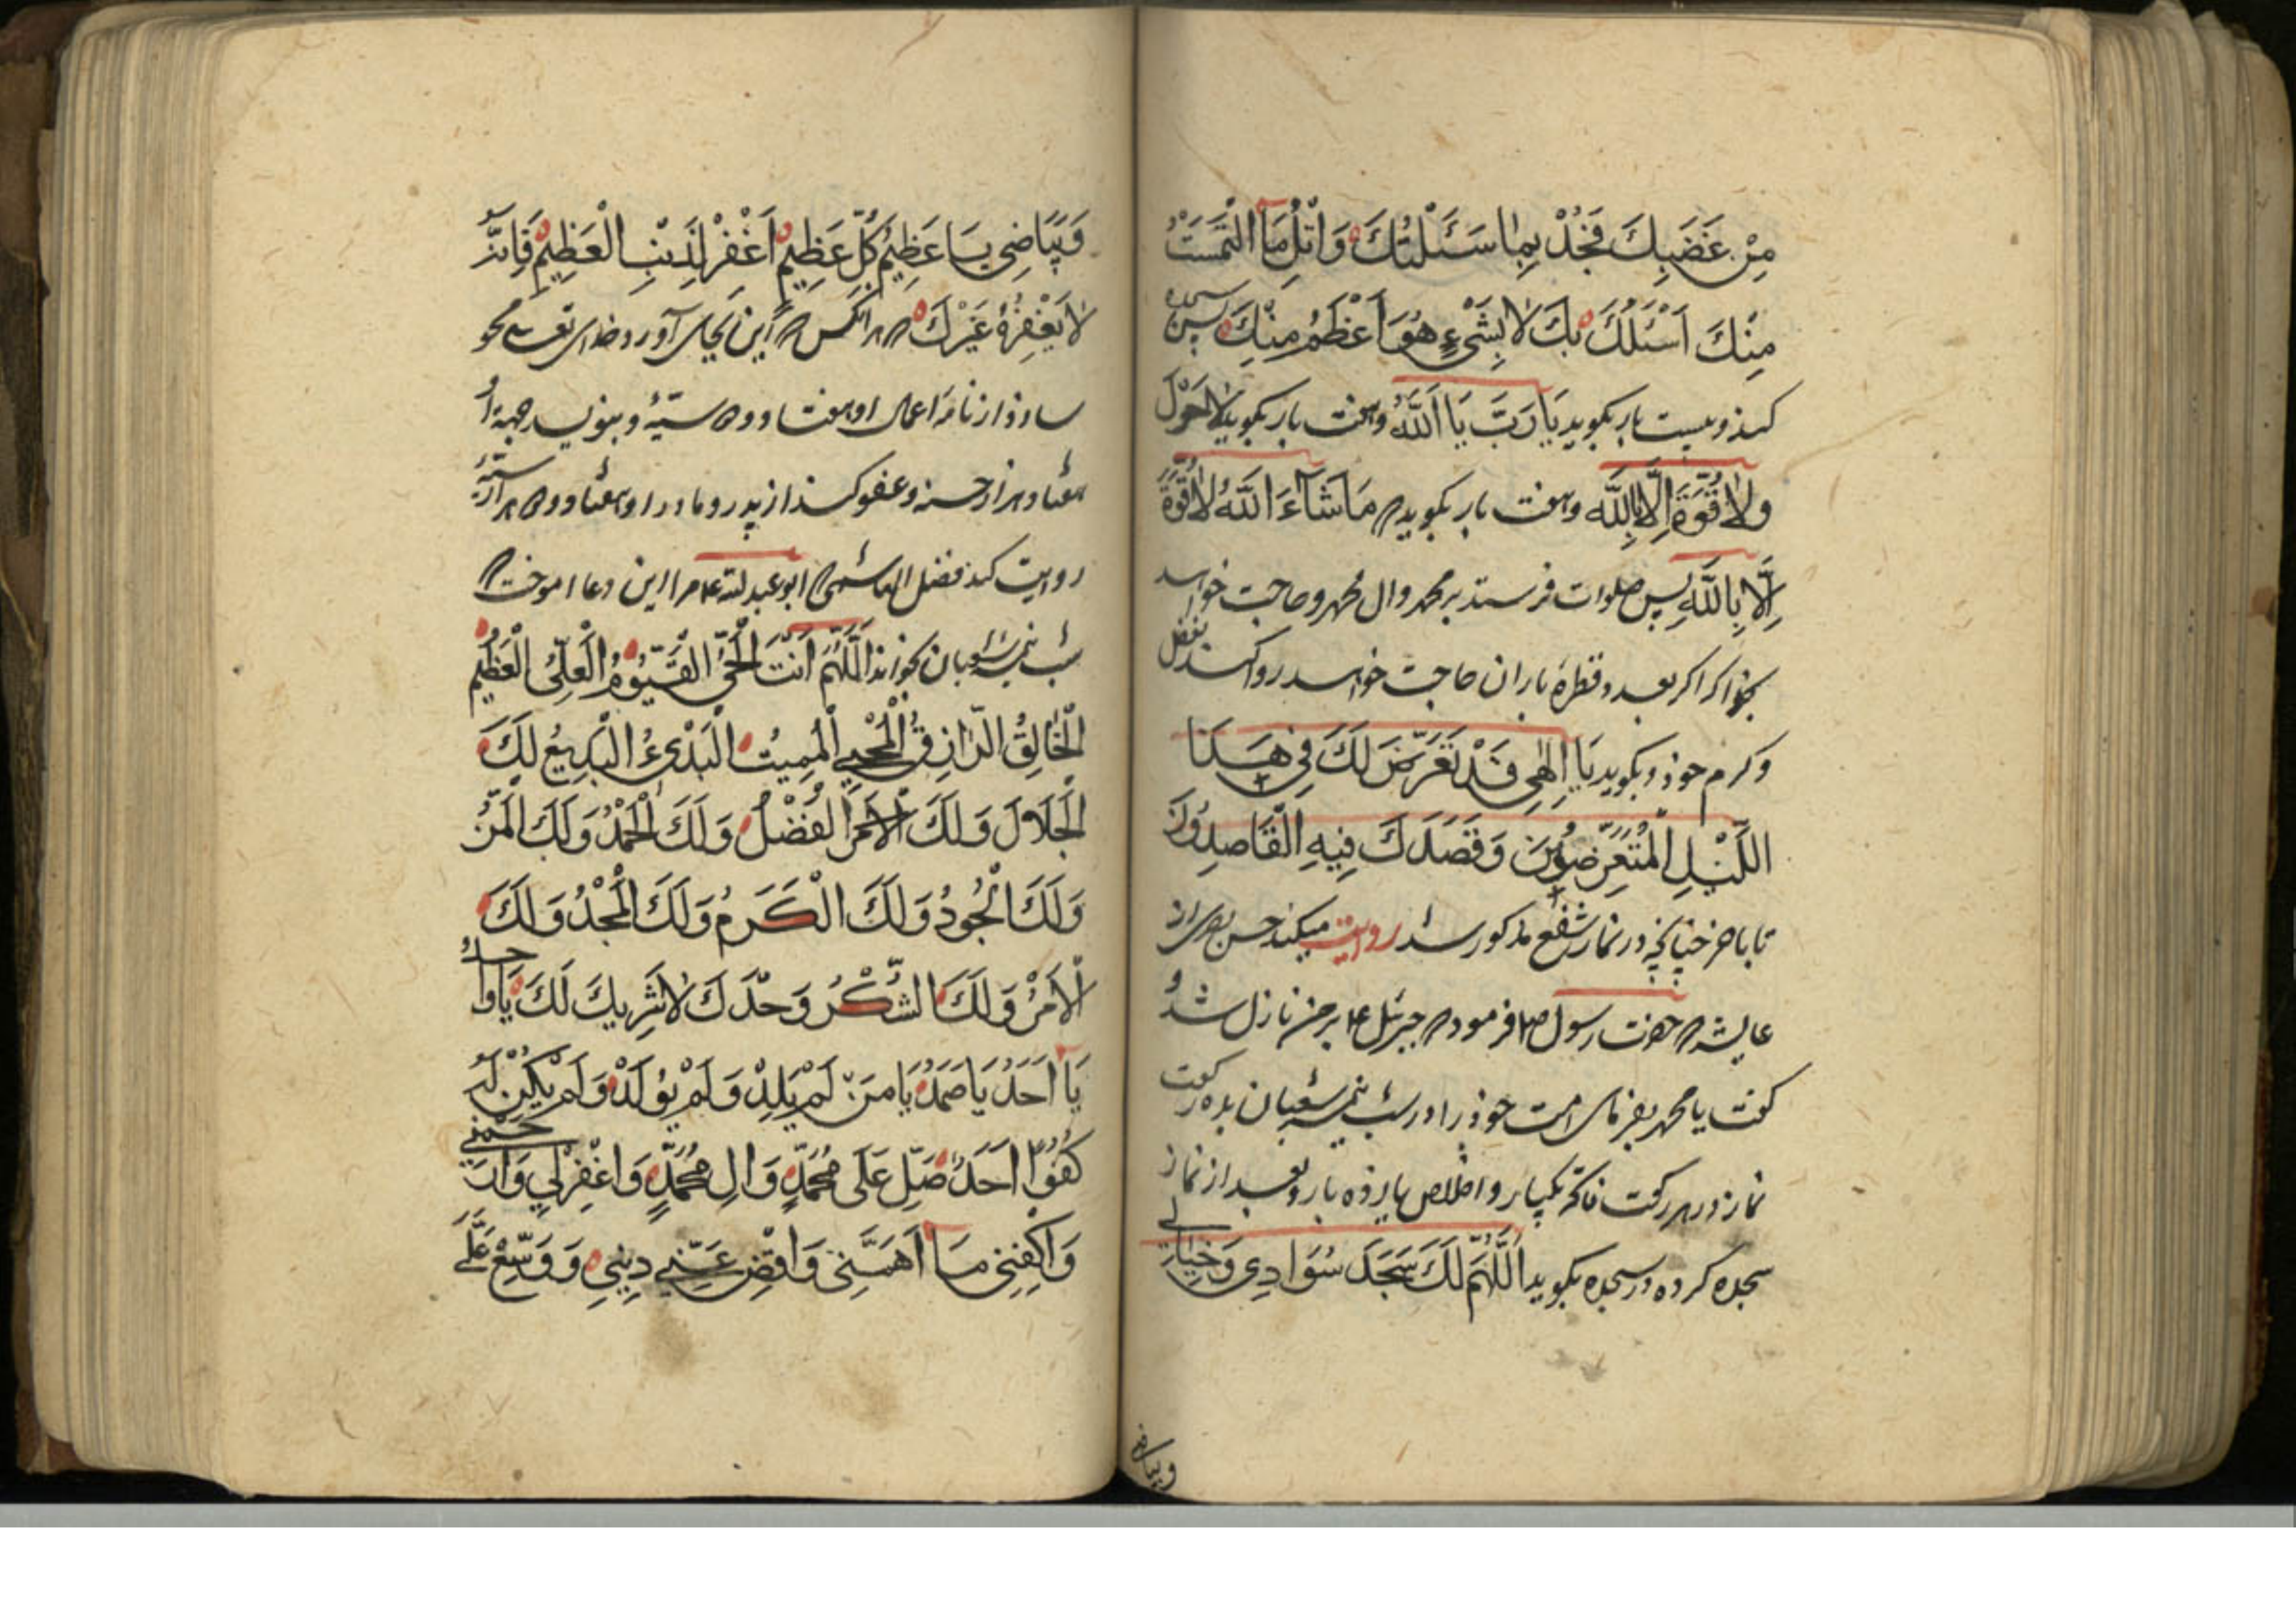 مِنْ غَضَبِكَ فَجُدْ بِمٰا سَئَلْتُكَ وَاَنْلِ مَا الْتَمَسْتُ
مِنْكَ اَسْئَلُكَ بِكَ لاٰ بِشَيْءٍ هُوَ اَعْظَمُ مِنْكَ پس سجده
کند و بیست بار بکوید یَا رَبِّ یَا اَللّٰهُ و هفت بار بکوید لاٰحَوْلَ
وَلاٰقُوَّةَ اِلَّا بِاللّٰهِ و هفت بار بکوید مَاشَآءَ اللّٰهُ لاٰقُوَّةَ
اِلَّا بِاللّٰهِ پس صلوات فرستد بر محمد و ال محمد و حاجت خواهد
بخدا که اکر بعدد قطرهٔ باران حاجت خواهد روا کند بفضل
و کرم خوذ و بکوید یَا اِلٰهِی قَدْ تَعَرَّضَ لَكَ فِی هَذَا
اللَّیْلِ الْمُتَعَرِّضُوْنَ وَقَصَدَكَ فِیهِ الْقَاصِدُونَ
تا باخر چنانچه در نماز شفع مذکور شد روایت میکند حسن بصری از
عایشه حضرت رسول فرمود جبرئیل بر من نازل شد و
کفت یا محمد بفرمای امت خوذ را در شب نیمه شعبان بده رکعت
نماز در هر رکعت فاتحه یکبار و اخلاص یازده بار و بعد از نماز
سجده کرده در سجده بکوید اَللّٰهُمَّ لَكَ سَجَدَ سَوَادِی وَخَیَالِی
وبیاض
وَبَیَاضِی یَا عَظِیْمُ كُلِّ عَظِیمٍ اَغْفِرْ لِذَنْبِ الْعَظِیْمِ فَاِنَّهُ
لاٰیَغْفِرُهُ غَیْرُكَ هر انکس این بجای آورد خدای تعالی محو
سازد از نامهٔ اعمال او هفتاد و دو سیّئه و بنویسد جهة او
هفتاد هزار حسنه و عفو کند از پدر و مادر او هفتاد و دو هزار سیّئه
روایت کند فضل الهاشمی ابوعبدالله مرا این دعا اموخت
شب نیمه شعبان بخواند اَللّٰهُمَّ اَنْتَ الْحَیُّ الْقَیُّوْمُ الْعَلِیُّ الْعَظِیْمُ
الْخٰالِقُ الرّٰازِقُ الْمُحْیِی الْمُمِیتُ الْبَدْیءُ الْبَدِیعُ لَكَ
الْجَلاَلُ وَلَكَ الْفَضْلُ وَلَكَ الْحَمْدُ وَلَكَ الْمَنُّ
وَلَكَ الْجُودُ وَلَكَ الْكَرَمُ وَلَكَ الْمَجْدُ وَلَكَ
الْاَمْرُ وَلَكَ الشُّكْرُ وَحْدَكَ لاٰشَرِیكَ لَكَ یَا وَاحِدُ
یَا اَحَدُ یَا صَمَدُ یَا مَنْ لَمْ یَلِدْ وَلَمْ یُوْلَدْ وَلَمْ یَكُنْ لَهُ
كُفُوًا اَحَدٌ صَلِّ عَلَی مُحَمَّدٍ وَالِ مُحَمَّدٍ وَاغْفِرْلِی وَارْحَمْنِی
وَاكْفِنِی مَا اَهَمَّنِی وَاقْضِ عَنِّی دِیْنِی وَوَسِّعْ عَلَیَّ